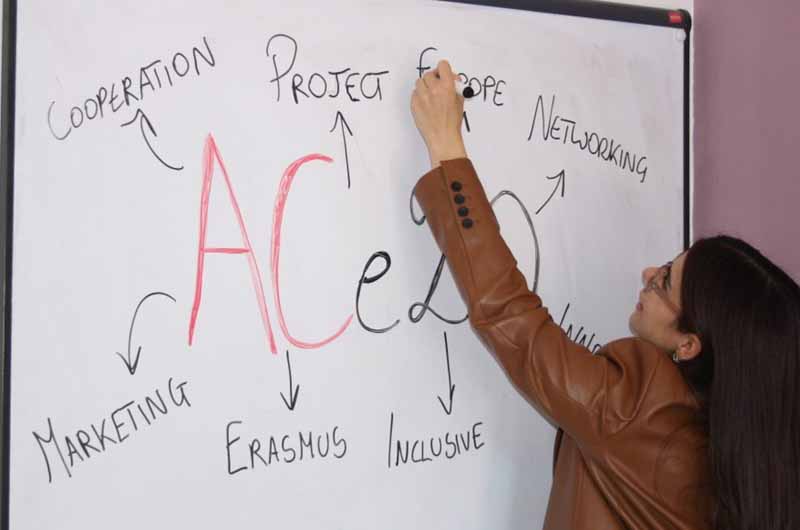 COOPERATION
PROJECT
EUROPE
NETWORKING
ACeD
MARKETING
ERASMUS
INCLUSIVE